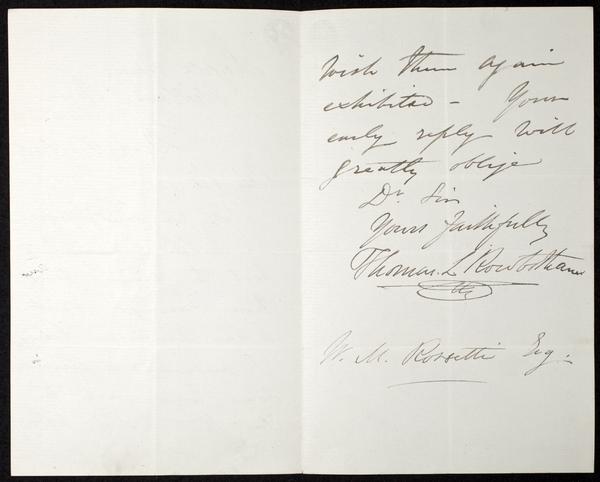 Wish them again
exhibited - Your
early reply will
greatly oblige
Dr Sir
Yours faithfully
Thomas. L Rowbotham
W. M. Rossetti Esq.